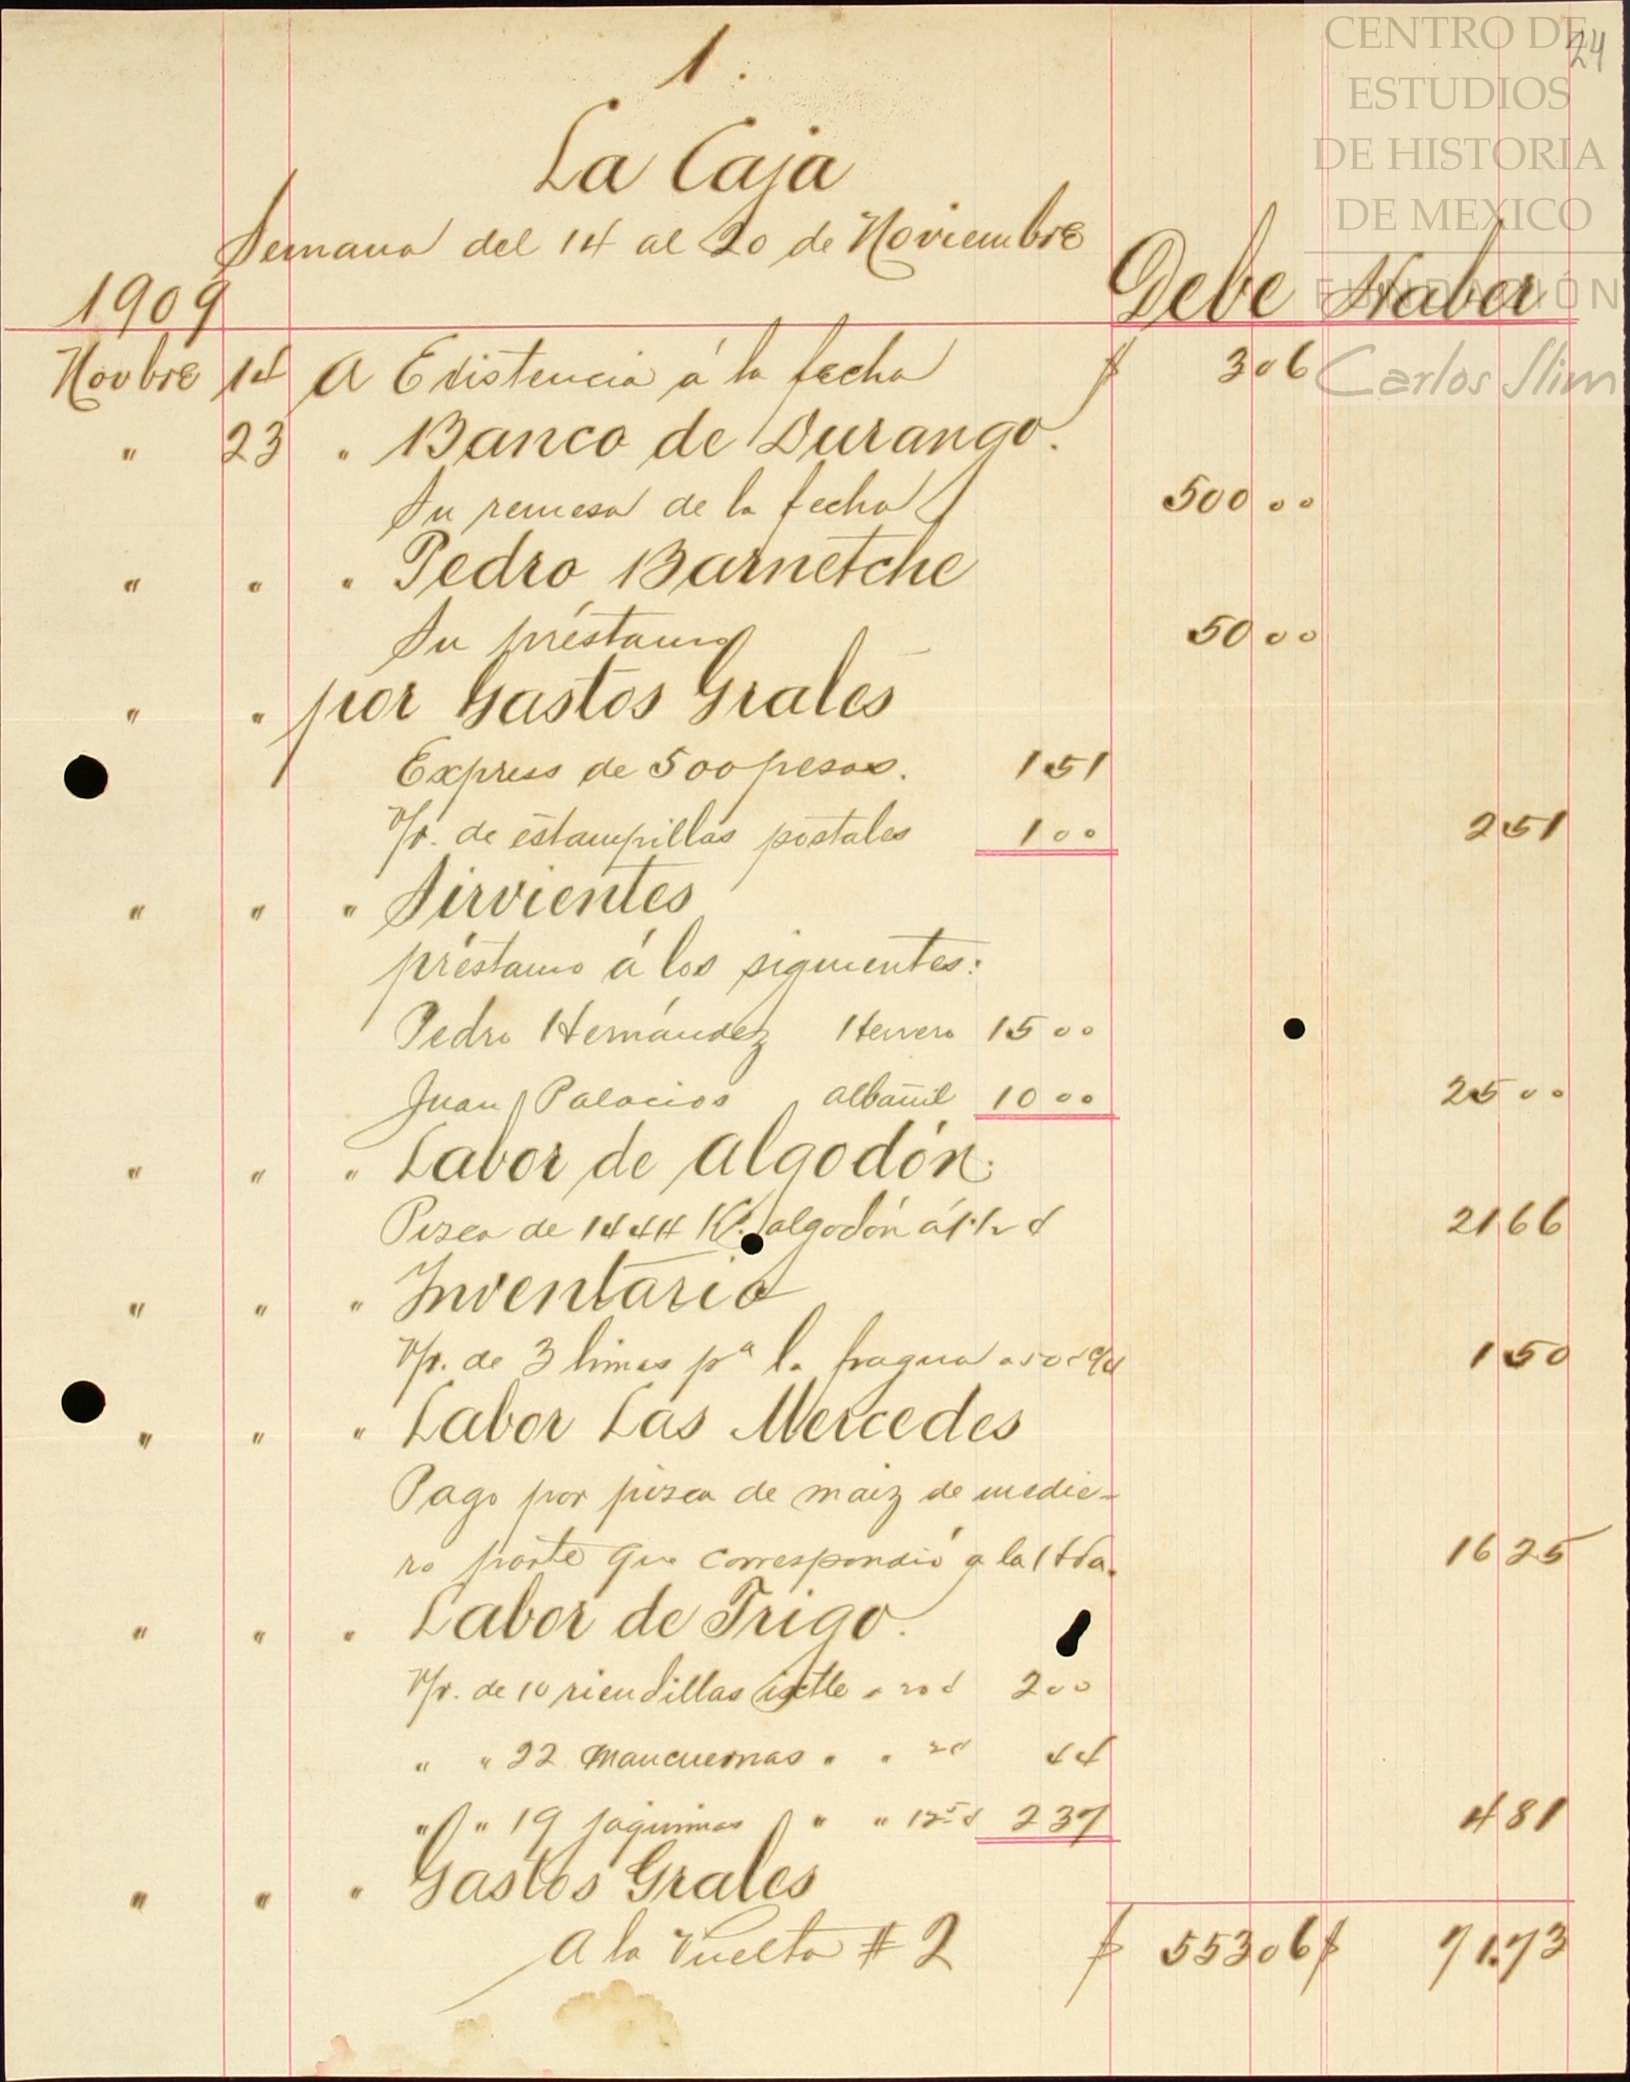 1.
24
CENTRO DE
ESTUDIOS
DE HISTORIA
DE MEXICO
FUNDACIÓN
Carlos Slim
La Caja
Semana del 14 al 20 de Noviembre
1909 Debe Haber
Novbre 14 A Existencia á la fecha $ 3 06
" 23 " Banco de Durango.
Su remesa de la fecha 500 00
" " " Pedro Barnetche
Su préstamo 50 00
" " por Gastos Grales
Express de 500 pesos. 1 51
V/r. de estampillas postales 1 00 2 51
" " " Sirvientes
préstamo á los siguientes:
Pedro Hernández Herrero 15 00
Juan Palacios albañil 10 00 25 00
" " " Labor de Algodón.
Pisca de 1444 K. algodón á 1 1/2 ¢ 21 66
" " " Inventario
V/r. de 3 limas pª la fragua a 50 ¢ 1 50
" " " Labor Las Mercedes
Pago por pisca de maiz de medie-
ro parte que correspondió a la Hda. 16 25
" " " Labor de Trigo.
V/r. de 10 riendillas ixtle a 20 ¢ 2 00
" " 22 mancuernas " " 2 ¢ 44
" " 19 jaquimas " " 12 5 ¢ 2 37 4 81
" " " Gastos Grales
A la Vuelta # 2 $ 553 06 $ 71.73